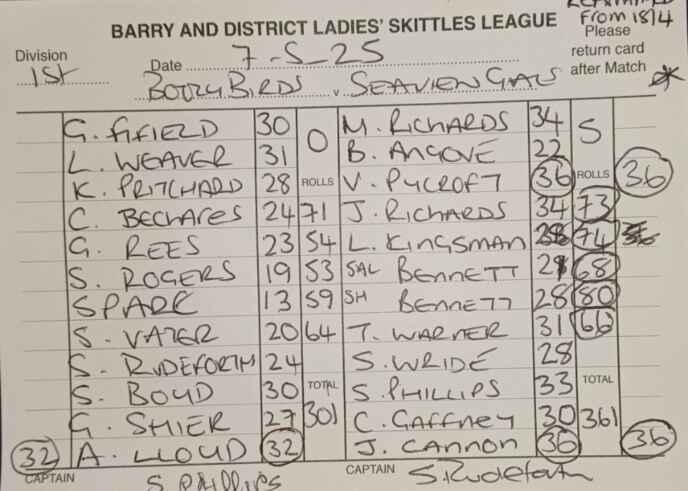 BARRY AND DISTRICT LADIES' SKITTLES LEAGUE From 18/4
Division 1st Date 7-5-25 Please return card after Match
BOOZY BIRDS v SEAVIEW GALS
G. FIFIELD 30 0 M. RICHARDS 34 5
L. WEAVER 31 B. ANGOVE 22
K. PRITCHARD 28 ROLLS V. PYCROFT 36 ROLLS 36
C. BECHARES 24 71 J. RICHARDS 34 73
G. REES 23 54 L. KINGSMAN 74
S. ROGERS 19 53 SAL BENNETT 21 68
SPARE 13 59 SH BENNETT 28 80
S. VATER 20 64 T. WARNER 31 66
S. RUDEFORTH 24 S. WRIDE 28
S. BOUD 30 TOTAL S. PHILLIPS 33 TOTAL
G. SHIER 27 301 C. GAFFNEY 30 361
32 A. LLOUD 32 J. CANNON 36 36
CAPTAIN S Phillips CAPTAIN S. Rudeforth